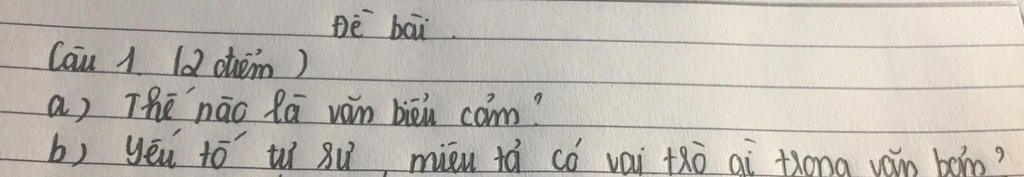 Đề bài.
Câu 1. (2 điểm)
a) Thế nào là văn biểu cảm?
b) Yếu tố tự sự, miêu tả có vai trò gì trong văn bản?